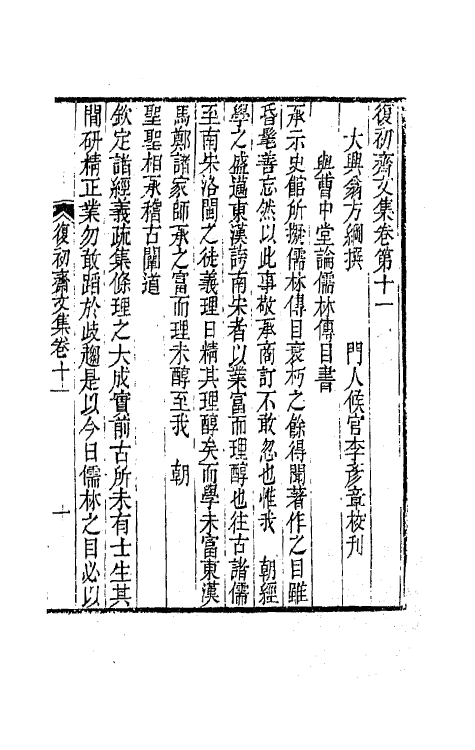 復初齋文集卷第十一
大興翁方綱撰　　門人候官李彥章校刊
與曹中堂論儒林傳目書
承示史館所擬儒林傳目衰朽之餘得聞著作之目雖
昏髦善忘然以此事敬承商訂不敢忽也惟我　朝經
學之盛邁東漢跨南宋者以業富而理醇也往古諸儒
至南宋洛閩之徒義理日精其理醇矣而學未富東漢
馬鄭諸家師承之富而理未醇至我　朝
聖聖相承稽古闡道
欽定諸經義疏集條理之大成實前古所未有士生其
間研精正業勿敢蹈於歧趨是以今日儒林之目必以
復初齋文集卷十一　一